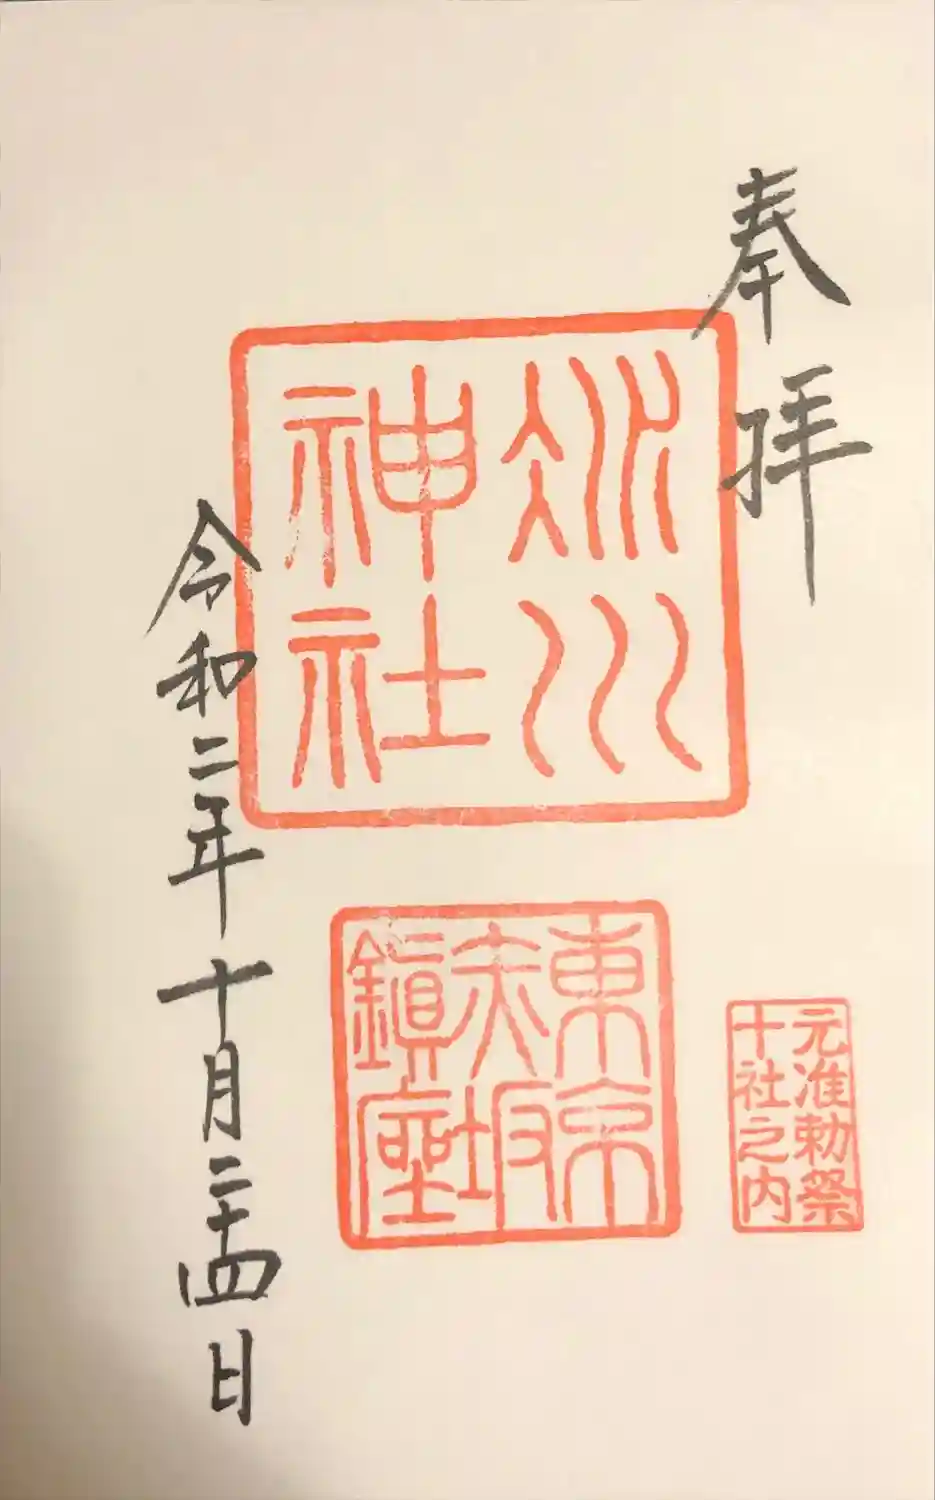 奉拝
氷川
神社
元准勅祭
十社之内
東京
赤坂
鎮座
令和二年十月二十四日